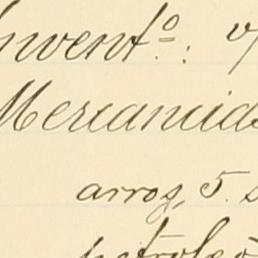 Invent.º: v/
Mercancide
arroz, 5. s
petroleo